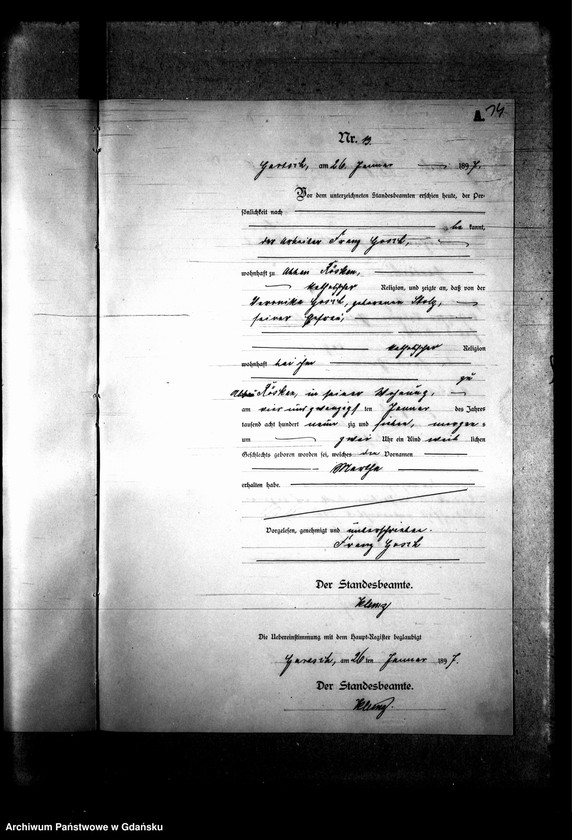 A. 74.
Nr. 13.
am 26. Januar 1897.
Vor dem unterzeichneten Standesbeamten erschien heute, der Per-
sönlichkeit nach
be kannt,
der Arbeiter Franz
wohnhaft zu Abbau Rösken,
katholischer Religion, und zeigte an, daß von der
Veronika geborenen Stolz,
seiner Ehefrau,
katholischer Religion
wohnhaft bei ihm
zu
Abbau Rösken, in seiner Wohnung,
am vier und zwanzigs ten Januar des Jahres
tausend acht hundert neun zig und sieben, morgens
um zwei Uhr ein Kind weib lichen
Geschlechts geboren worden sei, welches den Vornamen
Martha
erhalten habe.
Vorgelesen, genehmigt und unterschrieben.
Franz
Der Standesbeamte.
Die Uebereinstimmung mit dem Haupt-Register beglaubigt
am 26 ten Januar 1897.
Der Standesbeamte.
Archiwum Państwowe w Gdańsku